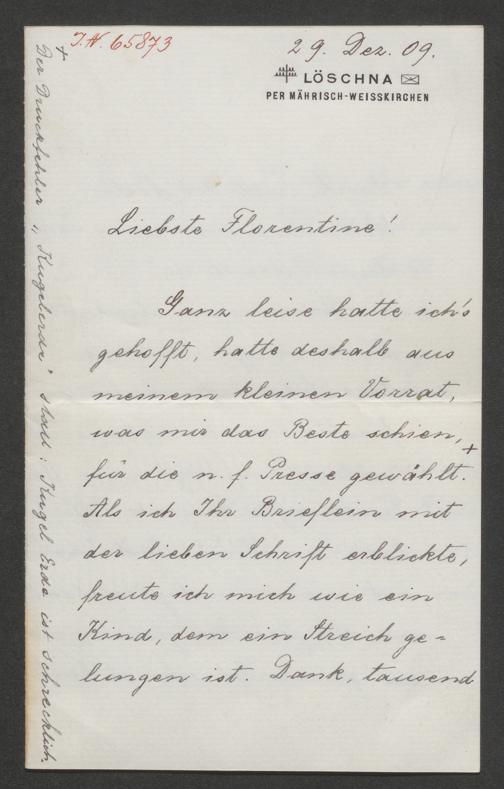 I.N. 65873
29. Dez. 09.
LÖSCHNA
PER MÄHRISCH-WEISSKIRCHEN
Liebste Florentine!
Ganz leise hatte ich's
gehofft, hatte deshalb aus
meinem kleinen Vorrat,
was mir das Beste schien, +
für die n. f. Presse gewählt.
Als ich Ihr Brieflein mit
der lieben Schrift erblickte,
freute ich mich wie ein
Kind, dem ein Streich ge=
lungen ist. Dank, tausend
+
Der Druckfehler „Kugelerde" statt: Kugel Erde ist schrecklich.